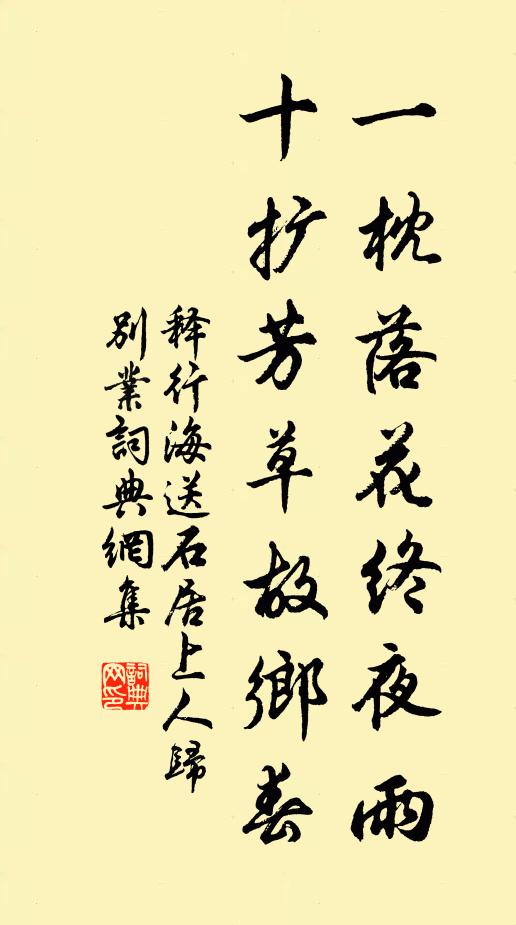 一枕落花终夜雨
十扩芳草故鄉春
释行海送石居上人歸
別業詞典網集
詞典网印